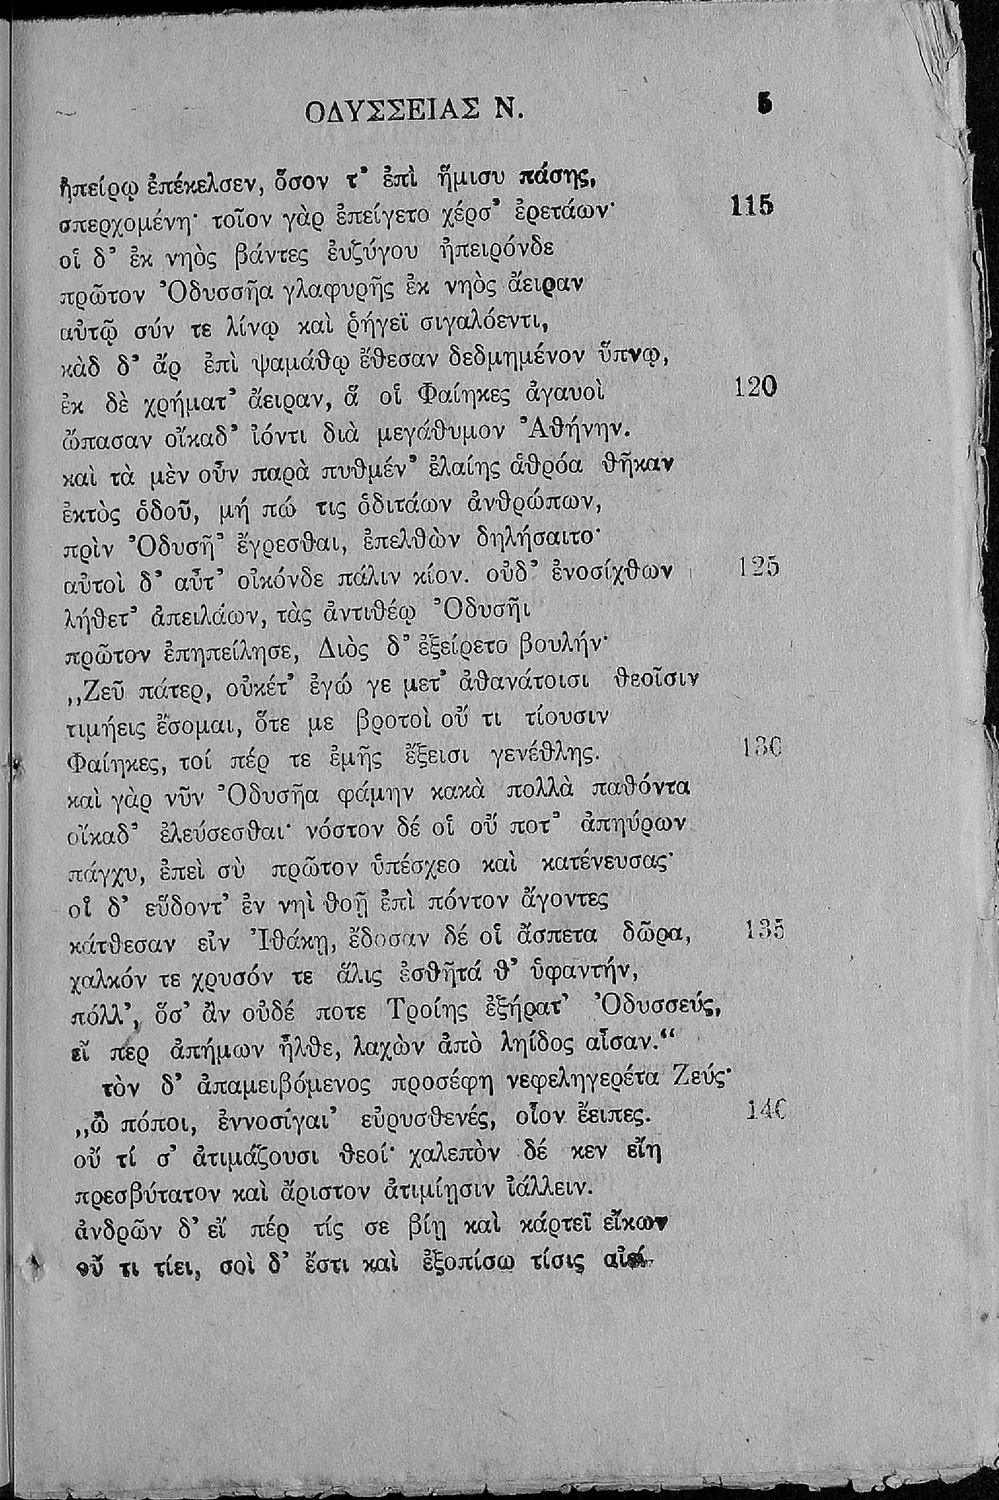 ΟΔΥΣΣΕΙΑΣ Ν. 5
ἠπείρῳ ἐπέκελσεν, ὅσον τ’ ἐπὶ ἥμισυ πάσης,
σπερχομένη· τοῖον γὰρ ἐπείγετο χέρσ’ ἐρετάων· 115
οἱ δ’ ἐκ νηὸς βάντες ἐυζύγου ἠπειρόνδε
πρῶτον Ὀδυσσῆα γλαφυρῆς ἐκ νηὸς ἄειραν
αὐτῷ σύν τε λίνῳ καὶ ῥήγεϊ σιγαλόεντι,
κὰδ δ’ ἄρ ἐπὶ ψαμάθῳ ἔθεσαν δεδμημένον ὕπνῳ,
ἐκ δὲ χρήματ’ ἄειραν, ἅ οἱ Φαίηκες ἀγαυοὶ 120
ὤπασαν οἴκαδ’ ἰόντι διὰ μεγάθυμον Ἀθήνην.
καὶ τὰ μὲν οὖν παρὰ πυθμέν’ ἐλαίης ἀθρόα θῆκαν
ἐκτὸς ὁδοῦ, μή πώ τις ὁδιτάων ἀνθρώπων,
πρὶν Ὀδυσῆ’ ἔγρεσθαι, ἐπελθὼν δηλήσαιτο·
αὐτοὶ δ’ αὖτ’ οἰκόνδε πάλιν κίον. οὐδ’ ἐνοσίχθων 125
λήθετ’ ἀπειλάων, τὰς ἀντιθέῳ Ὀδυσῆι
πρῶτον ἐπηπείλησε, Διὸς δ’ ἐξείρετο βουλήν·
„Ζεῦ πάτερ, οὐκέτ’ ἐγώ γε μετ’ ἀθανάτοισι θεοῖσιν
τιμήεις ἔσομαι, ὅτε με βροτοὶ οὔ τι τίουσιν
Φαίηκες, τοί πέρ τε ἐμῆς ἔξεισι γενέθλης. 130
καὶ γὰρ νῦν Ὀδυσῆα φάμην κακὰ πολλὰ παθόντα
οἴκαδ’ ἐλεύσεσθαι· νόστον δέ οἱ οὔ ποτ’ ἀπηύρων
πάγχυ, ἐπεὶ σὺ πρῶτον ὑπέσχεο καὶ κατένευσας·
οἱ δ’ εὕδοντ’ ἐν νηὶ θοῇ ἐπὶ πόντον ἄγοντες
κάτθεσαν εἰν Ἰθάκῃ, ἔδοσαν δέ οἱ ἄσπετα δῶρα, 135
χαλκόν τε χρυσόν τε ἅλις ἐσθῆτά θ’ ὑφαντήν,
πόλλ’, ὅσ’ ἂν οὐδέ ποτε Τροίης ἐξήρατ’ Ὀδυσσεύς,
εἴ περ ἀπήμων ἦλθε, λαχὼν ἀπὸ ληίδος αἶσαν.“
τὸν δ’ ἀπαμειβόμενος προσέφη νεφεληγερέτα Ζεύς·
„ὢ πόποι, ἐννοσίγαι’ εὐρυσθενές, οἷον ἔειπες. 140
οὔ τί σ’ ἀτιμάζουσι θεοί· χαλεπὸν δέ κεν εἴη
πρεσβύτατον καὶ ἄριστον ἀτιμίῃσιν ἰάλλειν.
ἀνδρῶν δ’ εἴ πέρ τίς σε βίῃ καὶ κάρτεϊ εἴκων
οὔ τι τίει, σοὶ δ’ ἔστι καὶ ἐξοπίσω τίσις αἰεί.